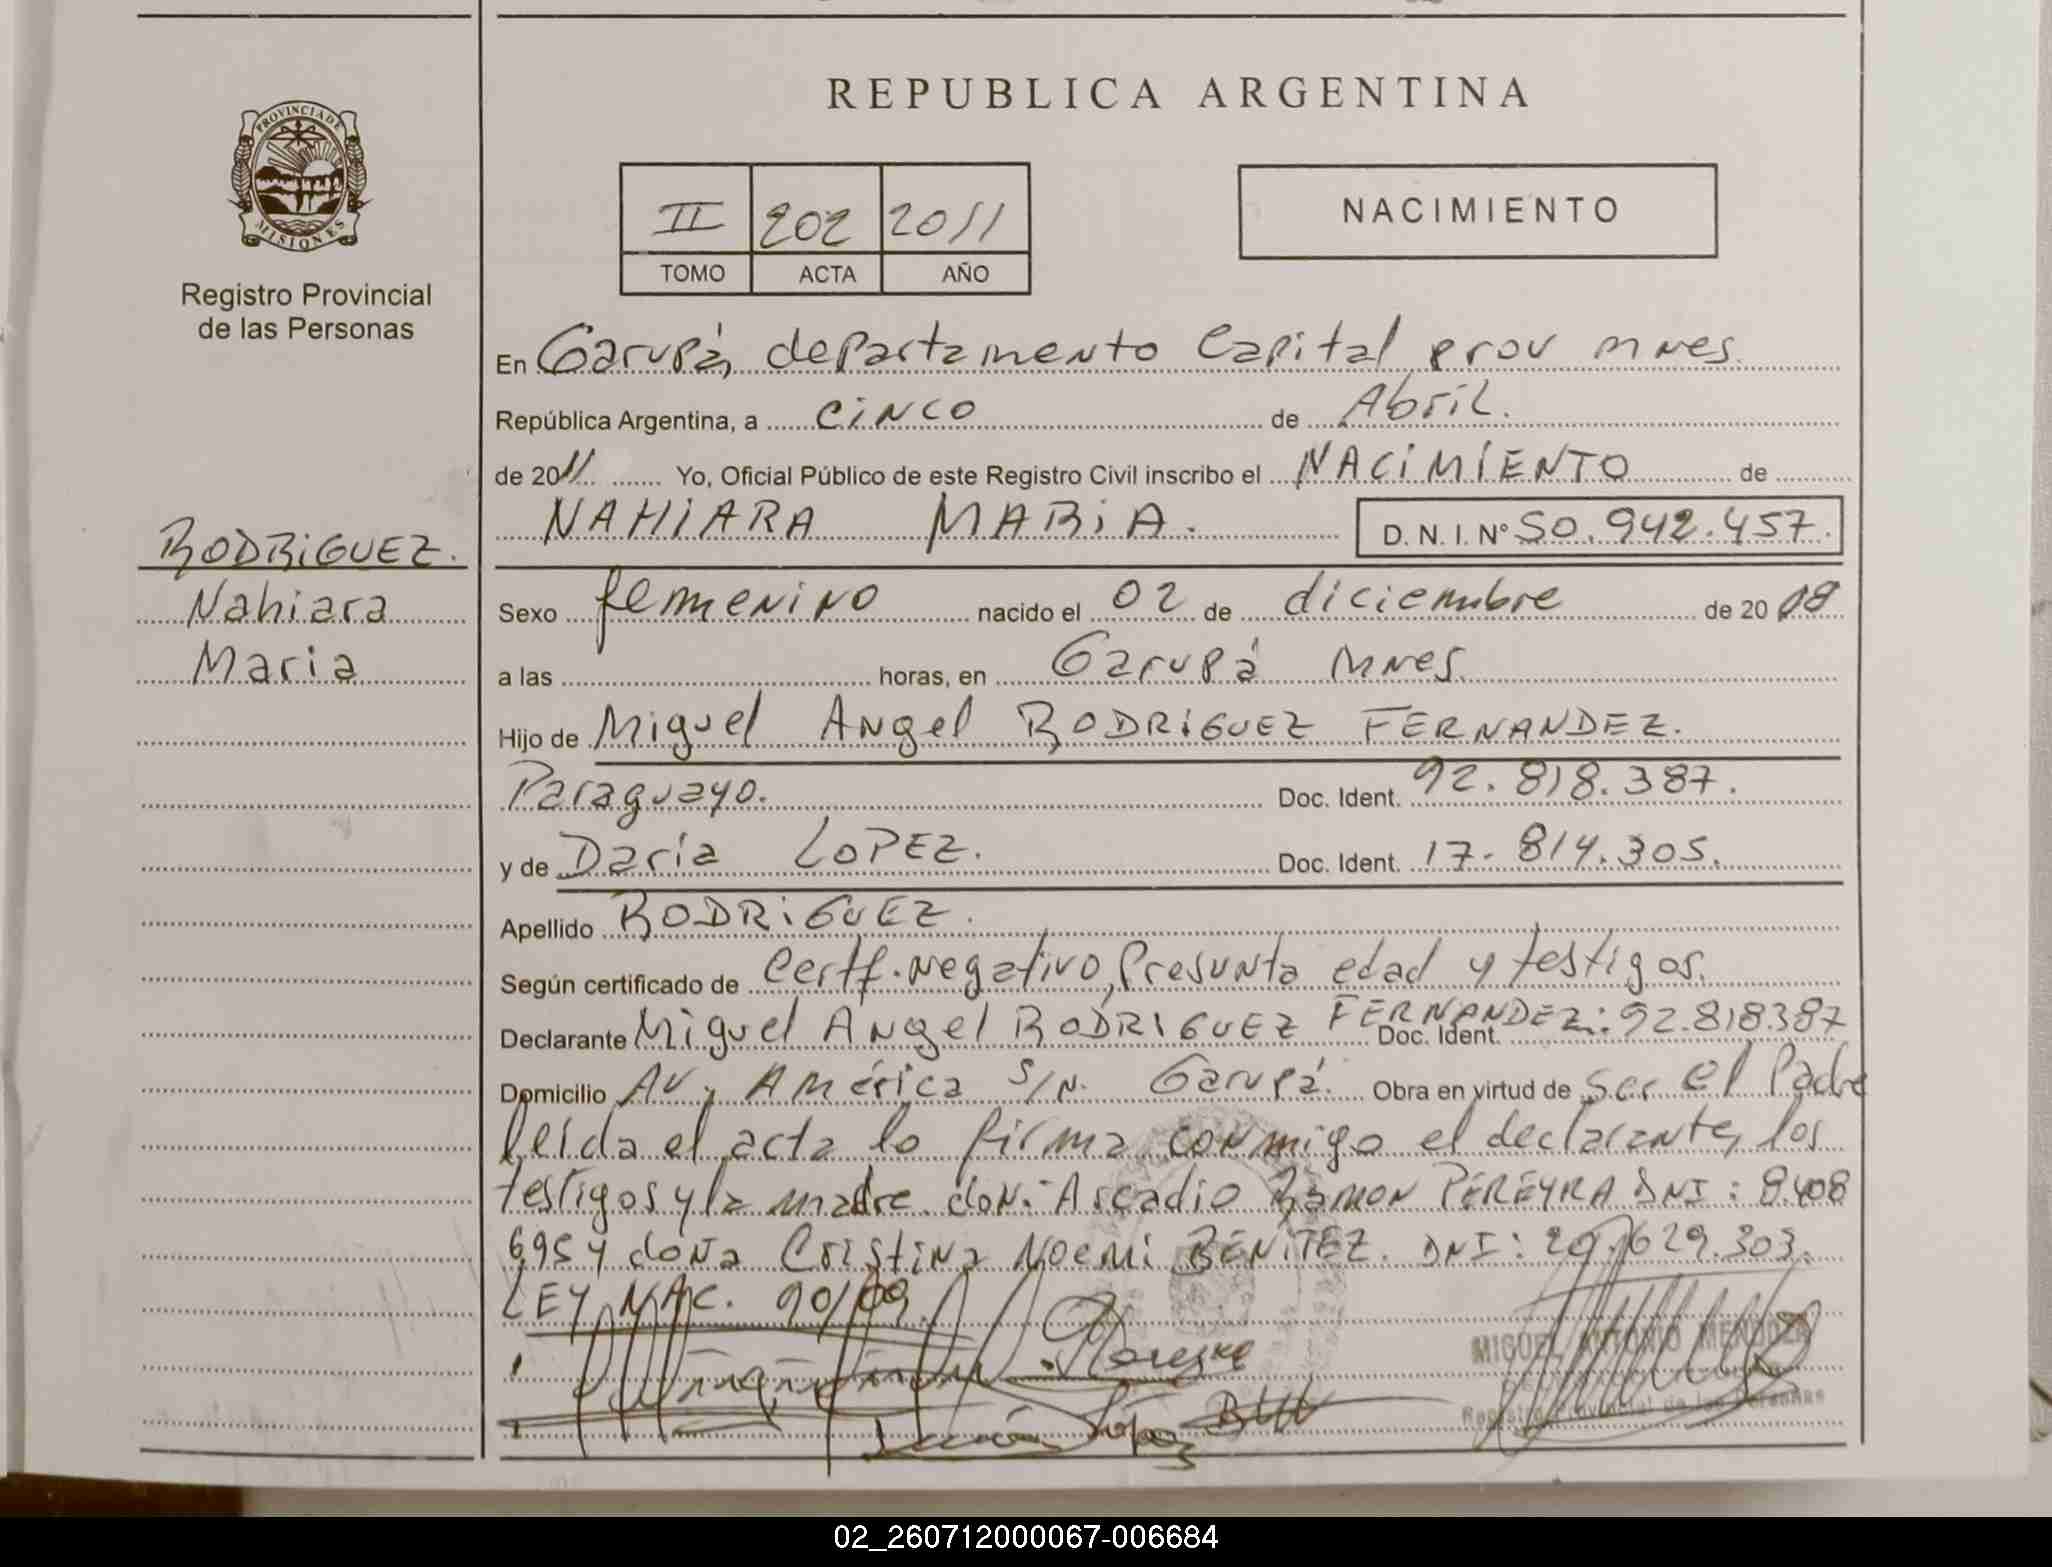 REPUBLICA ARGENTINA
PROVINCIA DE
MISIONES
Registro Provincial
de las Personas
II 202 2011
TOMO ACTA AÑO
NACIMIENTO
En Garupá, departamento Capital prov mnes.
República Argentina, a cinco de Abril.
de 2011 Yo, Oficial Público de este Registro Civil inscribo el NACIMIENTO de
NAHIARA MARIA. D. N. I. Nº 50.942.457.
RODRIGUEZ.
Nahiara
Maria
Sexo femenino nacido el 02 de diciembre de 20
a las horas, en Garupá mnes.
Hijo de Miguel Angel RODRIGUEZ FERNANDEZ.
Paraguayo. Doc. Ident. 92.818.387.
y de Daria LOPEZ. Doc. Ident. 17.814.305.
Apellido RODRIGUEZ.
Según certificado de Certf. negativo, Presunta edad y testigos.
Declarante Miguel Angel RODRIGUEZ FERNANDEZ: Doc. Ident. 92.818387
Domicilio AV. América S/N. Garupá. Obra en virtud de ser el Padre
leida el acta lo firma conmigo el declarante, los
testigos y la madre. don. Arcadio Ramon PEREYRA DNI: 8.408
695 y doña Cristina Noemi BENITEZ. DNI: 29.629.303.
LEY NAC. 90/09.
López
MIGUEL ANTONIO MENDOZA
Registro Provincial de las Personas
02_260712000067-006684